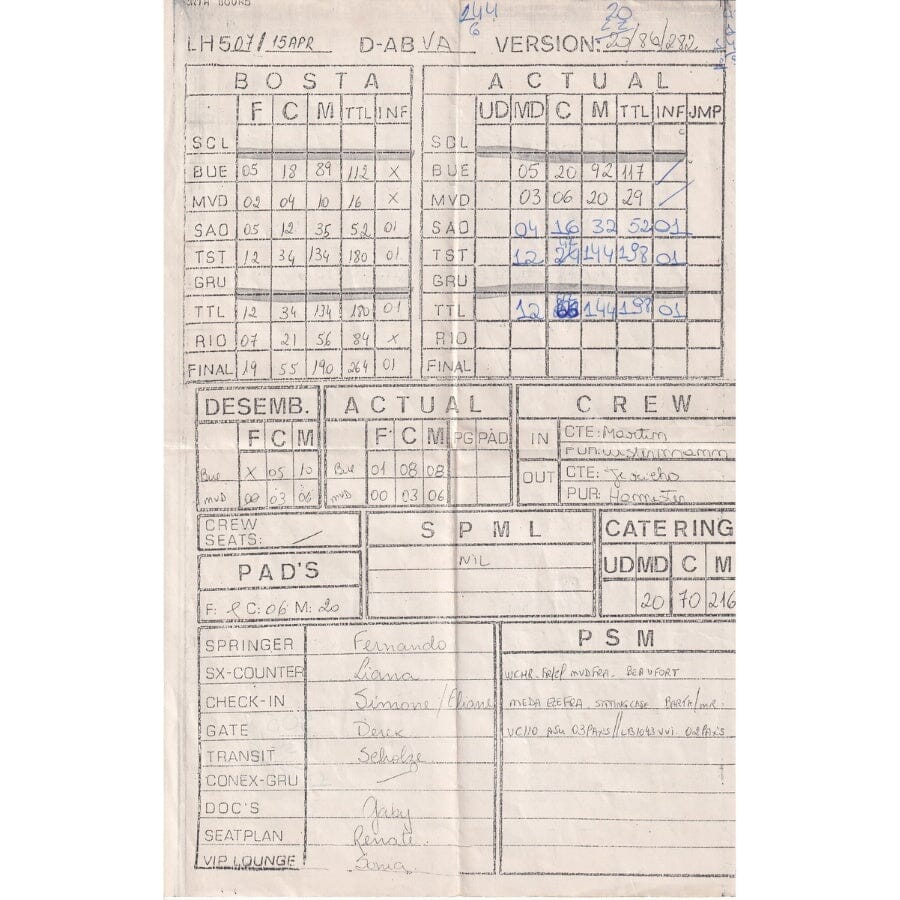 144
20
6
22
LH507/15APR D-ABVA VERSION: 20/86/282
BOSTA ACTUAL
F C M TTL INF UD MD C M TTL INF JMP
SCL SCL
BUE 05 18 89 112 X BUE 05 20 92 117 /
MVD 02 04 10 16 X MVD 03 06 20 29 /
SAO 05 12 35 52 01 SAO 04 16 32 52 01
TST 12 34 134 180 01 TST 12 42 144 198 01
GRU GRU
TTL 12 34 134 180 01 TTL 12 144 198 01
RIO 07 21 56 84 X RIO
FINAL 19 55 190 264 01 FINAL
DESEMB. ACTUAL CREW
F C M F C M PG PAD IN CTE: Martin
PUR:
Bue X 05 10 Bue 01 08 08 OUT CTE: Jericho
MVD 00 03 06 MVD 00 03 06 PUR:
CREW SPML CATERING
SEATS: /
NIL UD MD C M
PAD'S
20 70 216
F: C: 06 M: 20
SPRINGER Fernando PSM
SX-COUNTER Liana WCHR MVDFRA. BEAUFORT
CHECK-IN Simone/Eliane MEDA EZEFRA SITTINGCASE BARTH/MR.
GATE Derek VC110 ASU 03PAXS//LB1043 VVI 02PAXS
TRANSIT Scholze
CONEX-GRU
DOC'S Gaby
SEATPLAN Renate
VIP LOUNGE Sonia